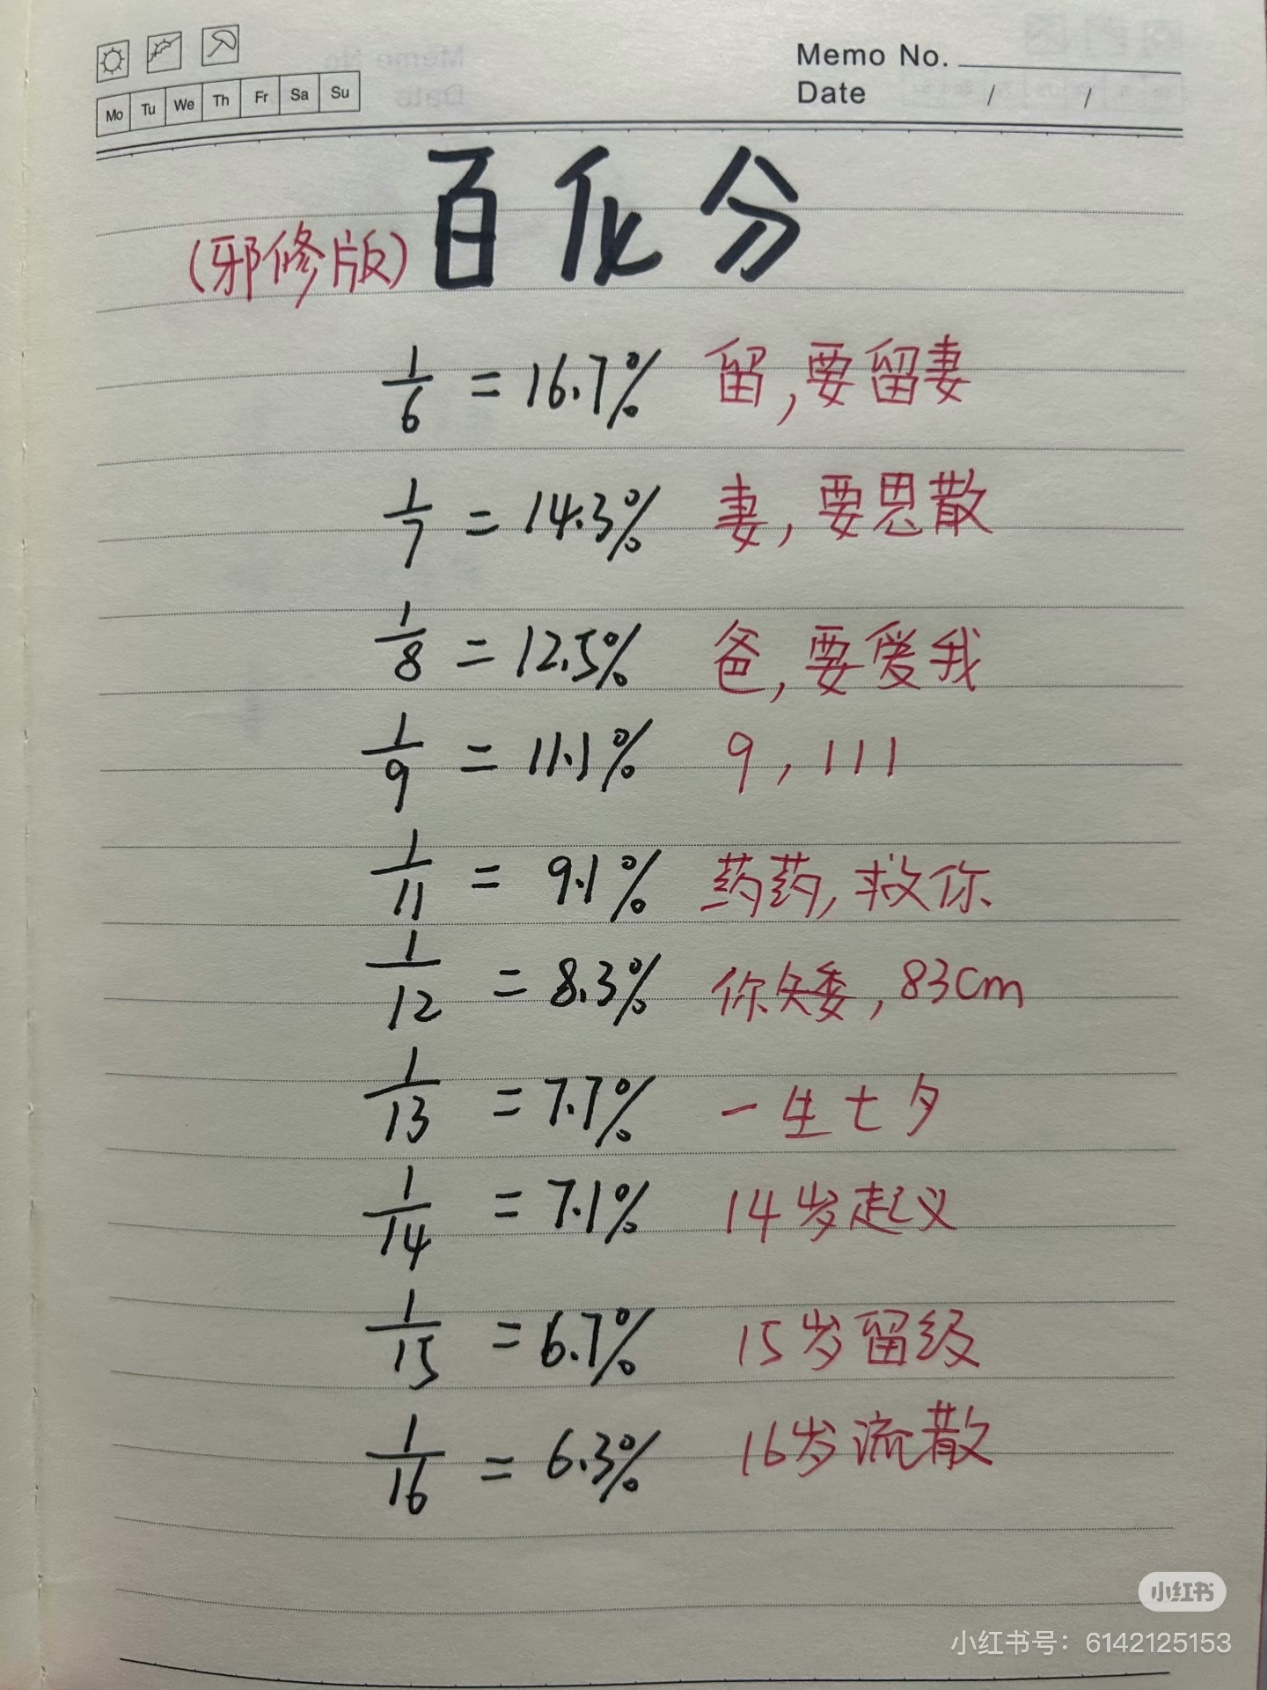 Mo Tu We Th Fr Sa Su
Memo No.
Date / /
百化分
(邪修版)
1/6 = 16.7% 留,要留妻
1/7 = 14.3% 妻,要思散
1/8 = 12.5% 爸,要爱我
1/9 = 11.1% 9,111
1/11 = 9.1% 药药,救你
1/12 = 8.3% 你矮,83cm
1/13 = 7.7% 一生七夕
1/14 = 7.1% 14岁起义
1/15 = 6.7% 15岁留级
1/16 = 6.3% 16岁流散
小红书
小红书号:6142125153